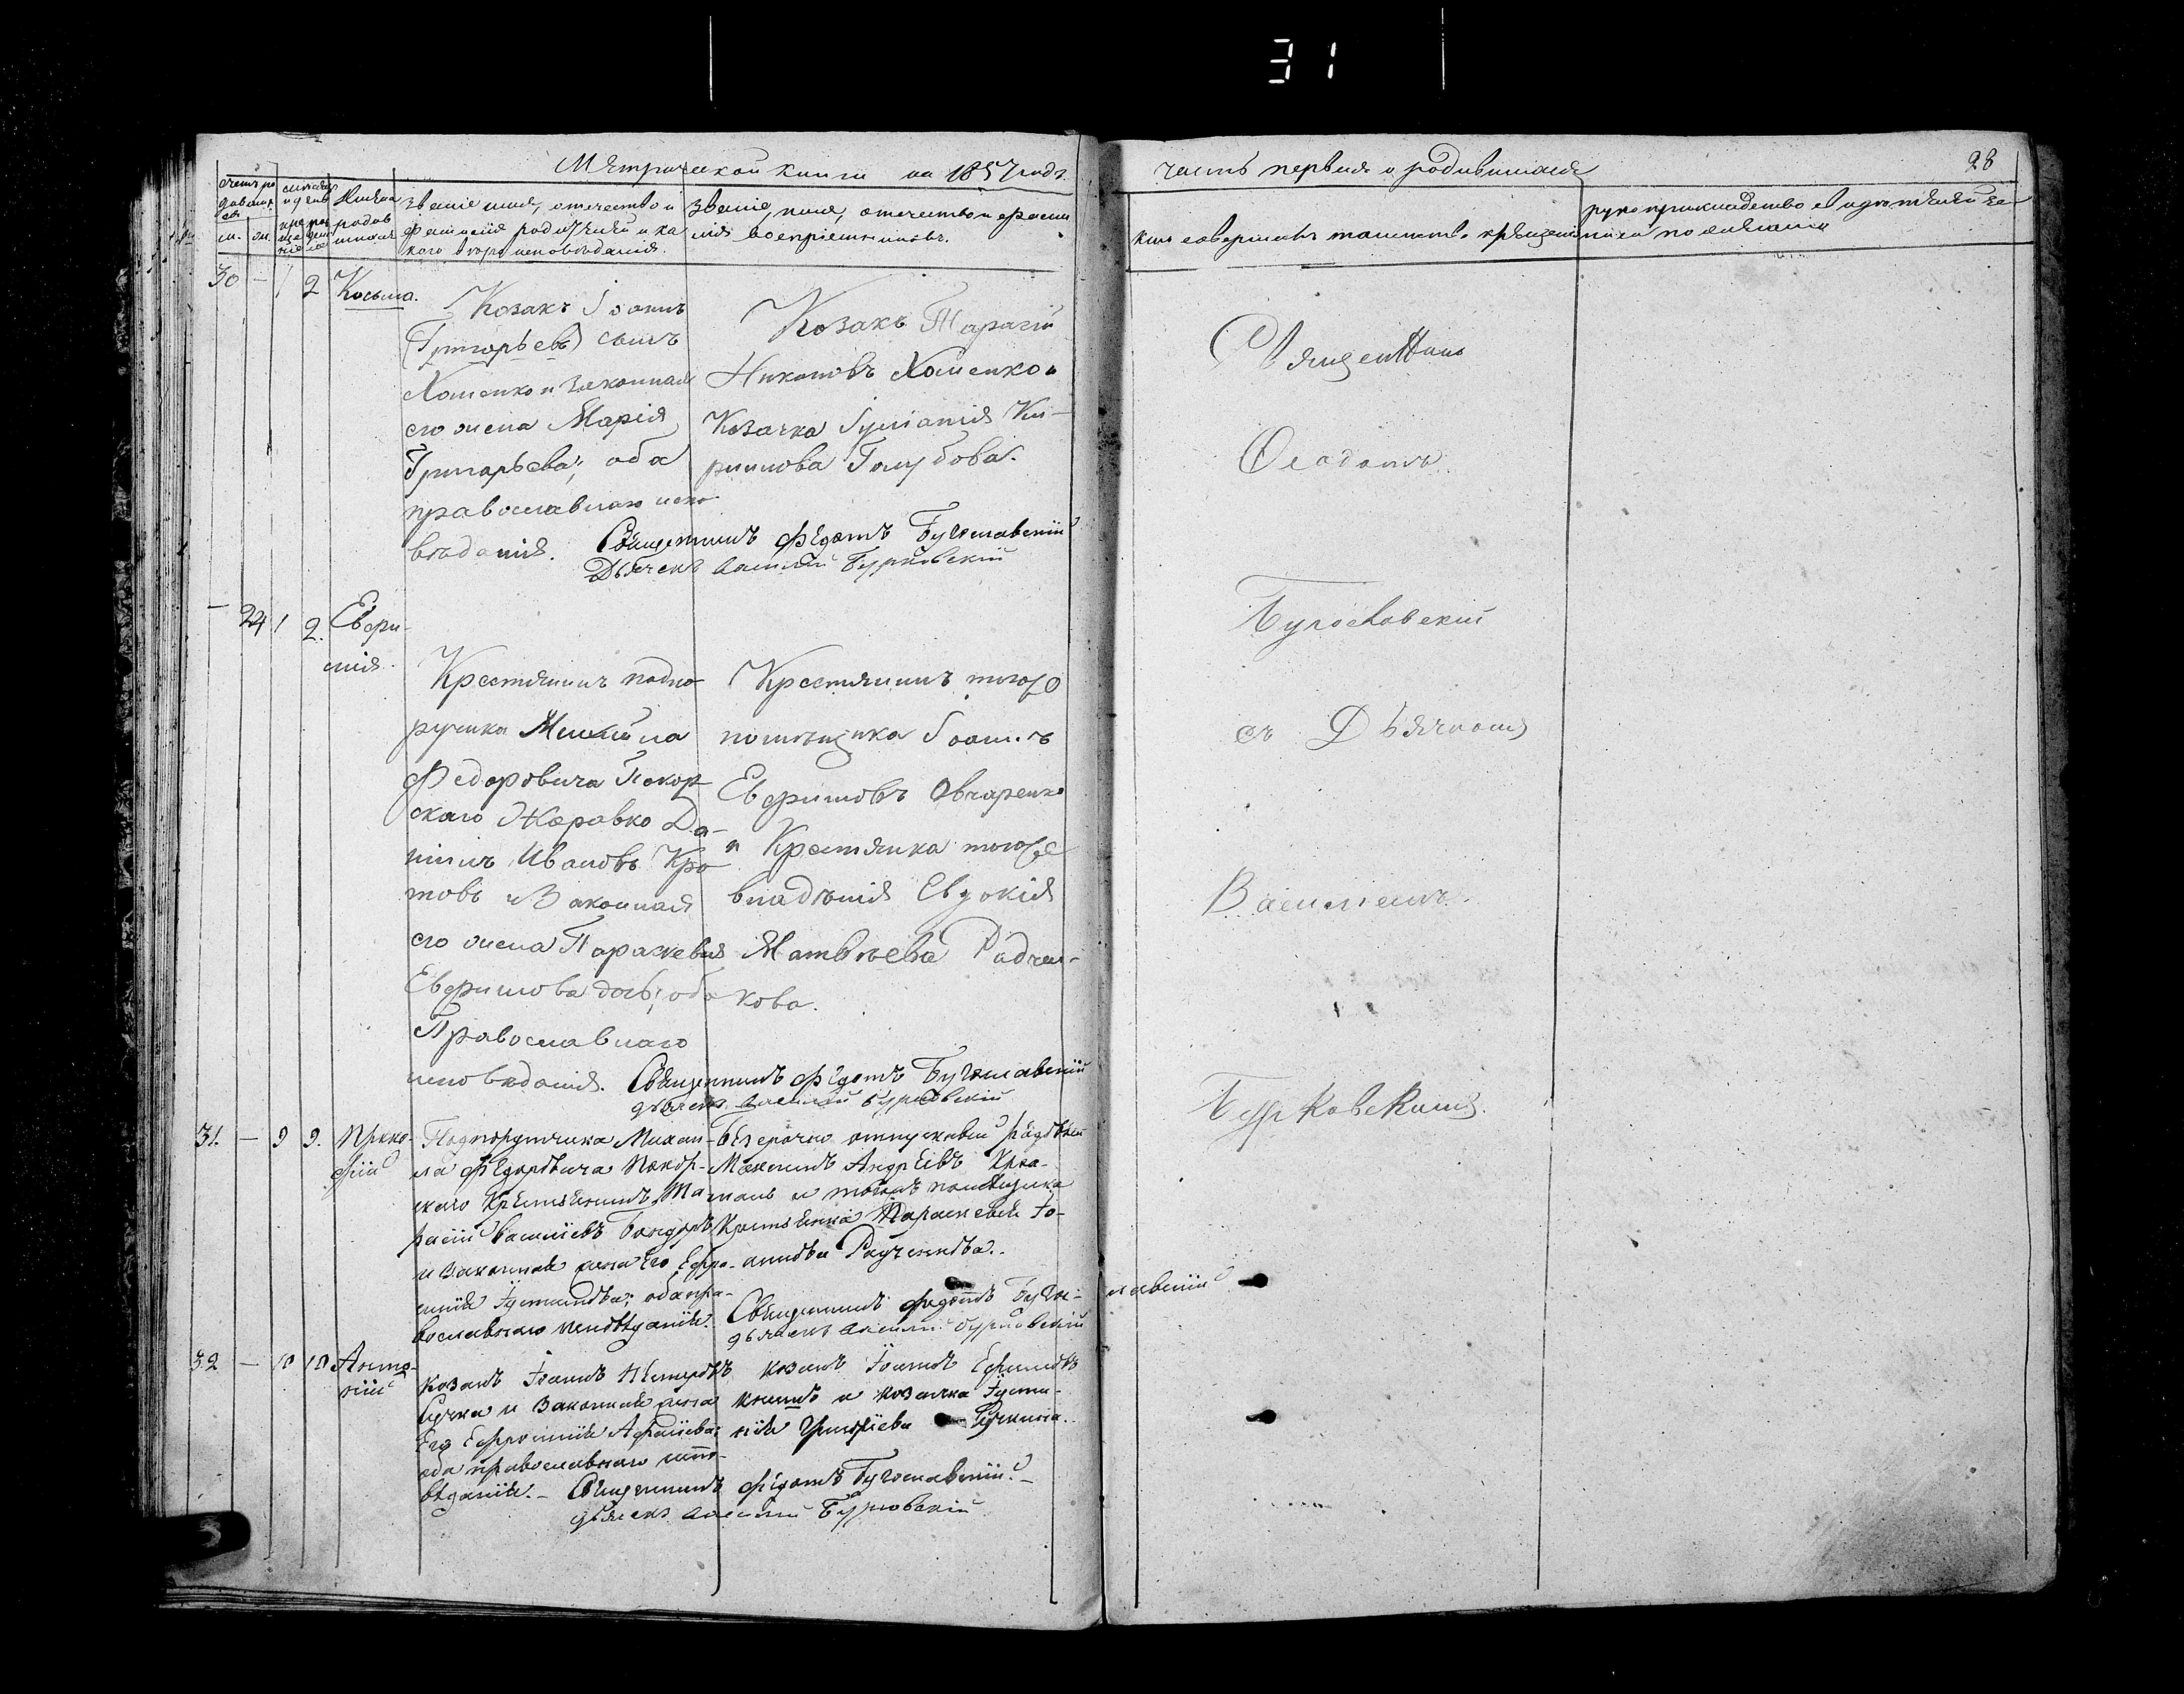 31
Метрической книги на 1857 годъ.
часть первая о родившихся
28
Имена родившихся
Званіе имя, отчество и фамилія родителей и какого вѣроисповѣданія.
Званіе, имя, отчество и фамилія воспріемниковъ.
Кто совершалъ таинство крещенія
рукоприкладство свидѣтелей записи по желанію
30 — 1 2 Косьма.
Козакъ Іоаннъ
Григорьевъ сынъ
Хоменко и законная
его жена Марія
Григорьева; оба
православнаго испо-
вѣданія.
Козакъ Тарасій
Никоновъ Хоменко и
Козачка Іуліанія Ки-
рилова Голубова.
Священникъ Федотъ Бугославскій
Дьячекъ Василій Бурковскій
— 24 1 2. Евфи-
мія.
Крестянинъ подпо-
ручика Михаила
Федоровича Покор-
скаго Жоравко Да-
ніилъ Ивановъ Кро-
товъ и Законная
его жена Параскевия
Евфимова дочь; оба
Православнаго
исповѣданія.
Крестянинъ того же
помѣщика Іоаннъ
Евфимовъ Овчаренко
и Крестянка того же
владѣнія Евдокія
Матвѣева Радчен-
кова.
Священникъ Федотъ Бугославскій
дьячекъ Василій Бурковскій
31. — 9 9. Проко-
фій
Подпорутчика Михаи-
ла Федоровича Покор-
скаго Крестьянинъ Та-
расій Василіевъ Бондарь
и Законная жена Его Евфи-
мія Іустинова; оба пра-
вославнаго исповѣданія.
Безсрочно отпускной рядовой
Максимъ Андреевъ
и тогожъ помѣщика
Крестьянка Параскевія Іо-
аннова Радченкова.
Священникъ Федотъ Буго-
славскій
дьячекъ Василій Бурковскій
32 — 10 10 Анто-
ній
Козакъ Іоаннъ
и Законная жена
Его Евфросинія
оба православнаго испо-
вѣданія.
Козакъ Іоаннъ Ефимовъ
и козачка Іусти-
нія Григоріева
Священникъ Федотъ Бугославскій.
дьячекъ Василій Бурковскій
Священникъ
Феодотъ
Бугославскій
съ Дьячкомъ
Василіемъ
Бурковскимъ.